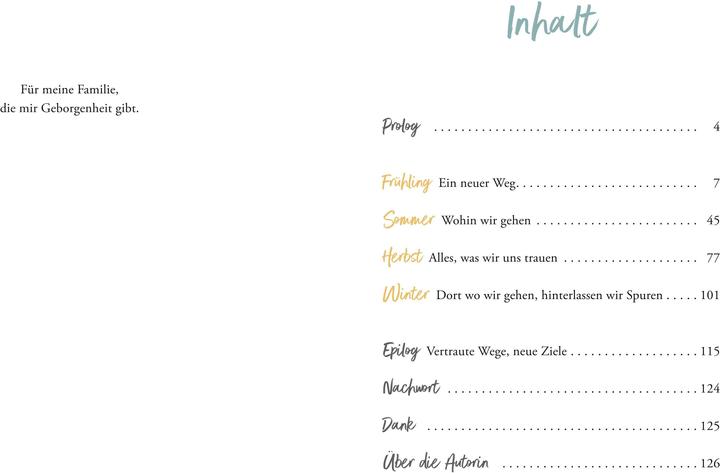 Für meine Familie,
die mir Geborgenheit gibt.
Inhalt
Prolog . . . . . . . . . . . . . . . . . . . . . . . . . . . . . . . . . . . . . . . 4
Frühling Ein neuer Weg. . . . . . . . . . . . . . . . . . . . . . . . . . . 7
Sommer Wohin wir gehen . . . . . . . . . . . . . . . . . . . . . . . . 45
Herbst Alles, was wir uns trauen . . . . . . . . . . . . . . . . . . . . 77
Winter Dort wo wir gehen, hinterlassen wir Spuren . . . . . 101
Epilog Vertraute Wege, neue Ziele . . . . . . . . . . . . . . . . . . . 115
Nachwort . . . . . . . . . . . . . . . . . . . . . . . . . . . . . . . . . . . . . 124
Dank . . . . . . . . . . . . . . . . . . . . . . . . . . . . . . . . . . . . . . . . 125
Über die Autorin . . . . . . . . . . . . . . . . . . . . . . . . . . . . . 126